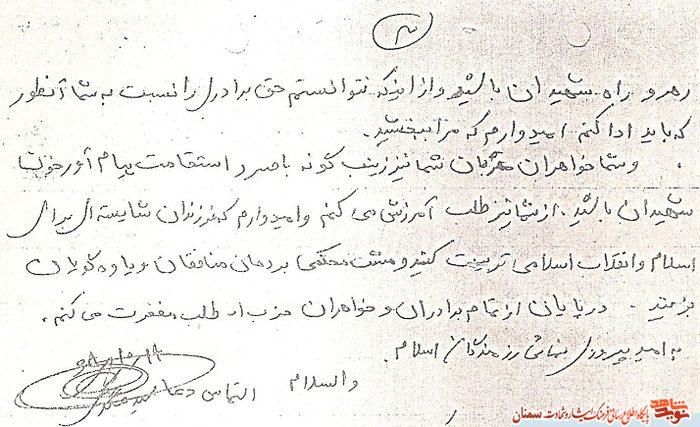 ۳
رهرو راه شهیدان باشید و از اینکه نتوانستم حق برادری را نسبت به شما آنطور
که باید ادا کنم امیدوارم که مرا ببخشید.
و شما خواهران مهربان شما نیز زینب گونه با صبر و استقامت پیام آور خون
شهیدان باشید. از شما نیز طلب آمرزش می کنم و امیدوارم که فرزندان شایسته ای برای
اسلام و انقلاب اسلامی تربیت کنید و مشت محکمی بر دهان منافقان و یاوه گویان
بزنید. در پایان از تمام برادران و خواهران حزب اله طلب مغفرت می کنم.
به امید پیروزی نهائی رزمندگان اسلام.
والسلام التماس دعا
نوید شاهد پایگاه اطلاع رسانی فرهنگ ایثار و شهادت سمنان